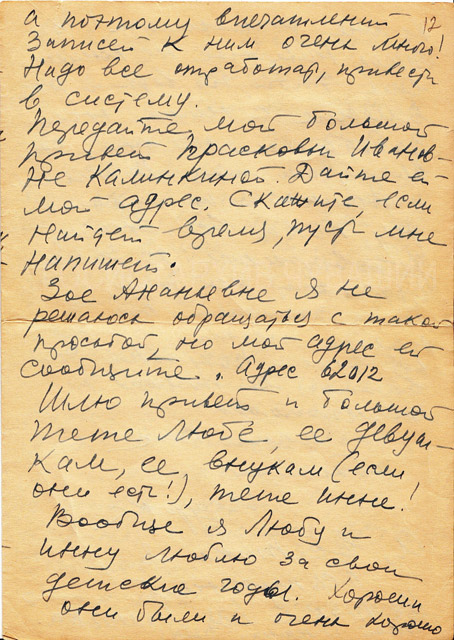 а поэтому впечатлений 12
Записей к ним очень много!
Надо все отработать, привести
в систему.
Передайте мой большой
привет Прасковьи Иванов-
не Калинкиной. Дайте ей
мой адрес. Скажите, если
найдет время, пусть мне
напишет.
Зое Ананьевне я не
решаюсь обращаться с такой
просьбой, но мой адрес ей
сообщите. Адрес 62012
Шлю привет и большой
тете Любе, ее девуш-
кам, ее внукам (если
они есть!), тете Инне!
Вообще я Любу и
Инну люблю за свои
детские годы. Хорошие
они были и очень хорошо